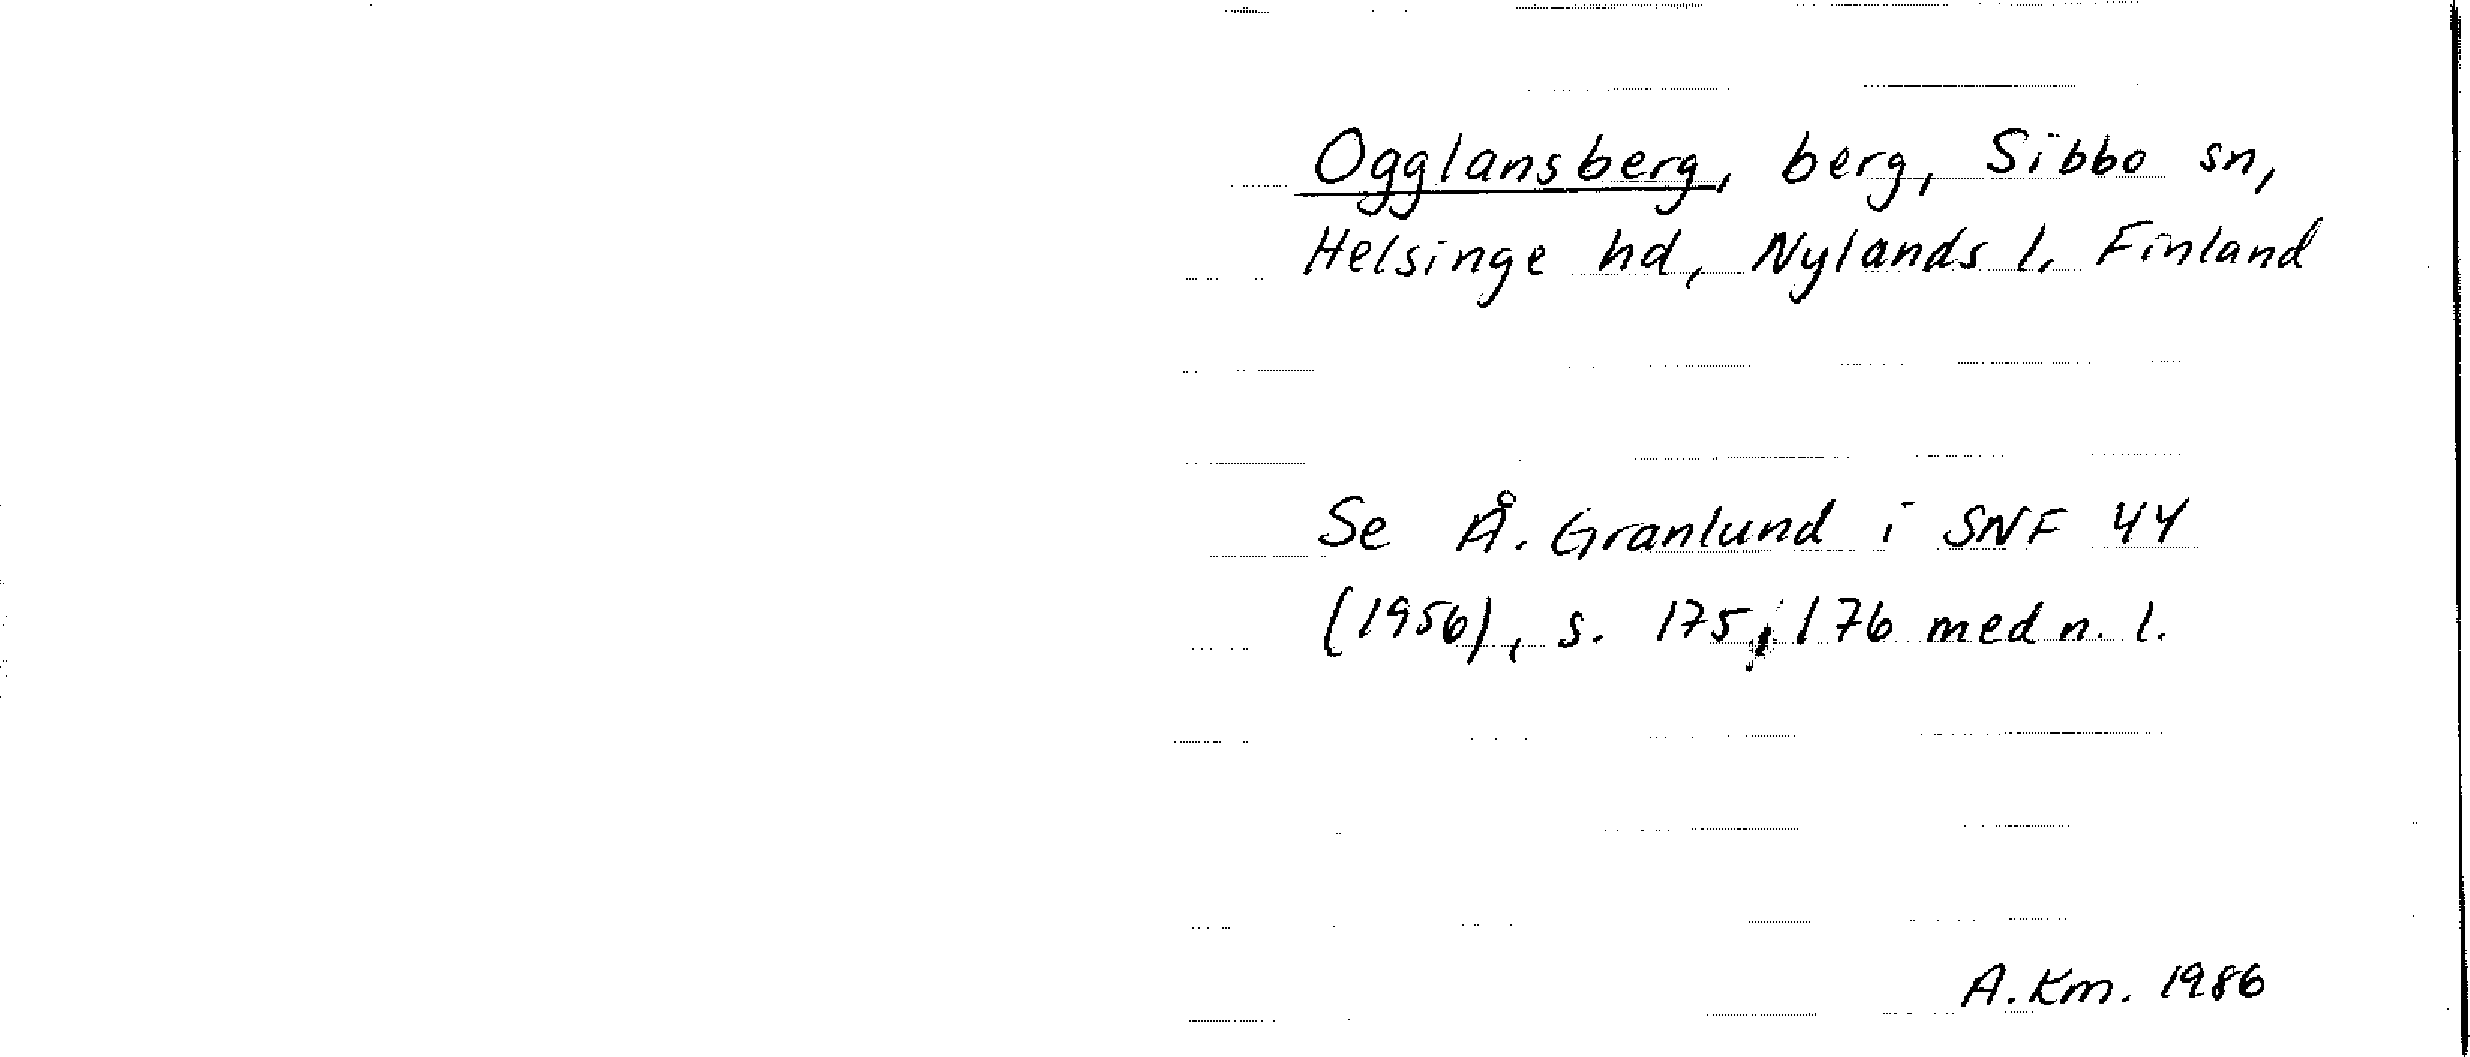 Ogglansberg, berg, Sibbo sn,
Helsinge hd, Nylands l, Finland
Se Å. Granlund i SNF 44
(1956), s. 175, 176 med n. 1.
A. Km. 1986